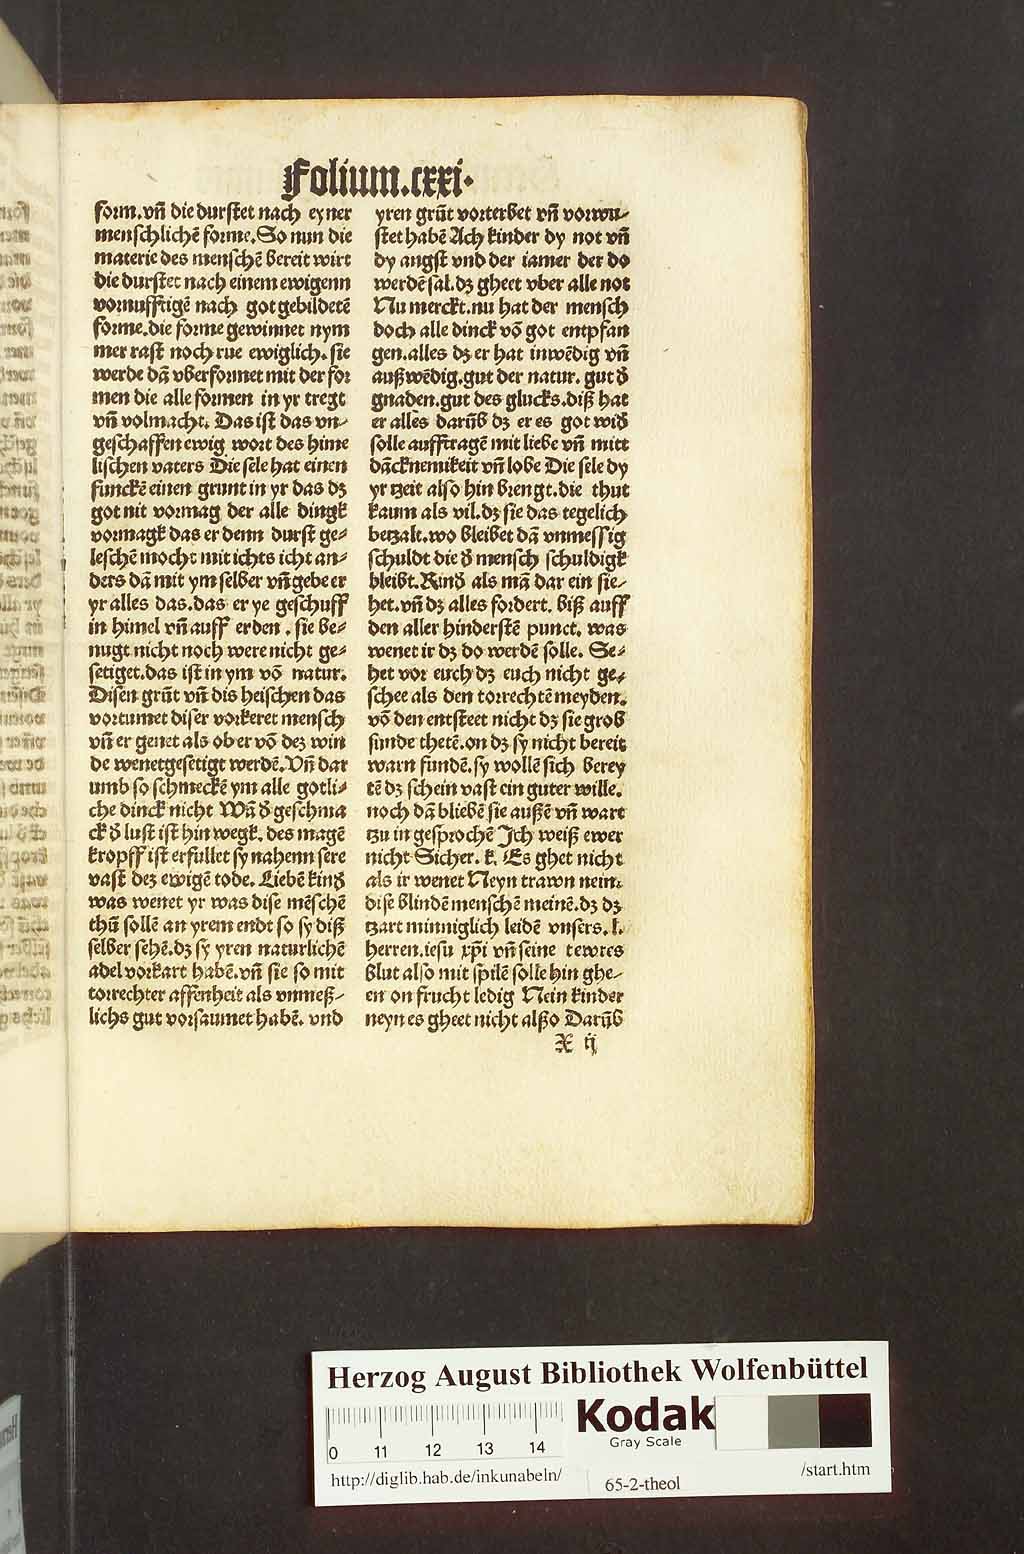 Folium.cxxi.
form.vñ die durstet nach eyner
menschlichē forme.So nun die
materie des menschē bereit wirt
die durstet nach einem ewigenn
vornufftigē nach got gebildetē
forme.die forme gewinnet nym
mer rast noch rue ewiglich. sie
werde dā vberformet mit der for
men die alle formen in yr tregt
vñ volmacht. Das ist das vn-
geschaffen ewig wort des hime
lischen vaters Die sele hat einen
funckē einen grunt in yr das dz
got nit vormag der alle dingk
vormagk das er denn durst ge-
leschē mocht mit ichts icht an-
ders dā mit ym selber vñ gebe er
yr alles das.das er ye geschuff
in himel vñ auff erden . sie be-
nugt nicht noch were nicht ge-
setiget.das ist in ym vō natur.
Disen grūt vñ dis heischen das
vortumet diser vorkeret mensch
vñ er genet als ob er vō dez win
de wenet gesetigt werdē.Vñ dar
umb so schmeckē ym alle gotli-
che dinck nicht Wā d̄ geschma
ck d̄ lust ist hin wegk. des magē
kropff ist erfullet sy nahenn sere
vast dez ewigē tode. Liebē kind̄
was wenet yr was dise mēschē
thū sollē an yrem endt so sy diß
selber sehē.dz sy yren naturlichē
adel vorkart habē.vñ sie so mit
torrechter affenheit als vnmeß-
lichs gut vorsaumet habē. vnd
yren grūt vorterbet vñ vorwu-
stet habē Ach kinder dy not vñ
dy angst vnd der iamer der do
werdē sal.dz gheet vber alle not
Nu merckt.nu hat der mensch
doch alle dinck vō got entpfan
gen.alles dz er hat inwēdig vñ
außwēdig.gut der natur. gut d̄
gnaden.gut des glucks.diß hat
er alles darūb dz er es got wid̄
solle aufftragē mit liebe vñ mitt
dācknemikeit vñ lobe Die sele dy
yr tzeit also hin brengt.die thut
kaum als vil.dz sie das tegelich
betzalt.wo bleibet dā vnmessig
schuldt die d̄ mensch schuldigk
bleibt.Kind̄ als mā dar ein sie-
het.vñ dz alles fordert. biß auff
den aller hinderstē punct. was
wenet ir dz do werdē solle. Se-
het vor euch dz euch nicht ge-
schee als den torrechtē meyden.
vō den entsteet nicht dz sie grob
sunde thetē.on dz sy nicht bereit
warn fundē.sy wollē sich berey
tē dz schein vast ein guter wille.
noch dā bliebē sie aussē vñ wart
tzu in gesprochē Ich weiß ewer
nicht Sicher. k. Es ghet nicht
als ir wenet Neyn trawn nein.
dise blindē menschē meinē.dz dz
tzart minniglich leidē vnsers. l.
herren.iesu xp̄i vñ seine tewres
blut also mit spilē solle hin ghe-
en on frucht ledig Nein kinder
neyn es gheet nicht alßo Darūb
X ij
Herzog August Bibliothek Wolfenbüttel
0 11 12 13 14
Kodak
Gray Scale
http://diglib.hab.de/inkunabeln/
65-2-theol
/start.htm